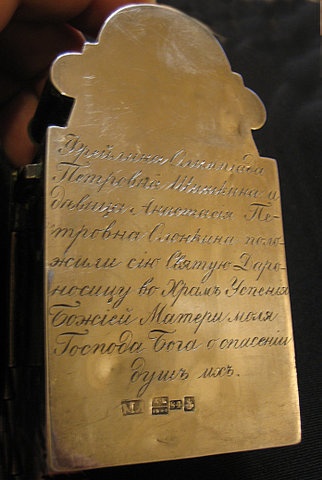 Фрейлина Олимпіада
Петровна Шишкина и
дѣвица Анастасія Пе-
тровна поло-
жили сію Святую Даро-
носицу во Храмъ Успенія
Божіей Матери моля
Господа Бога о спасеніи
душъ ихъ.